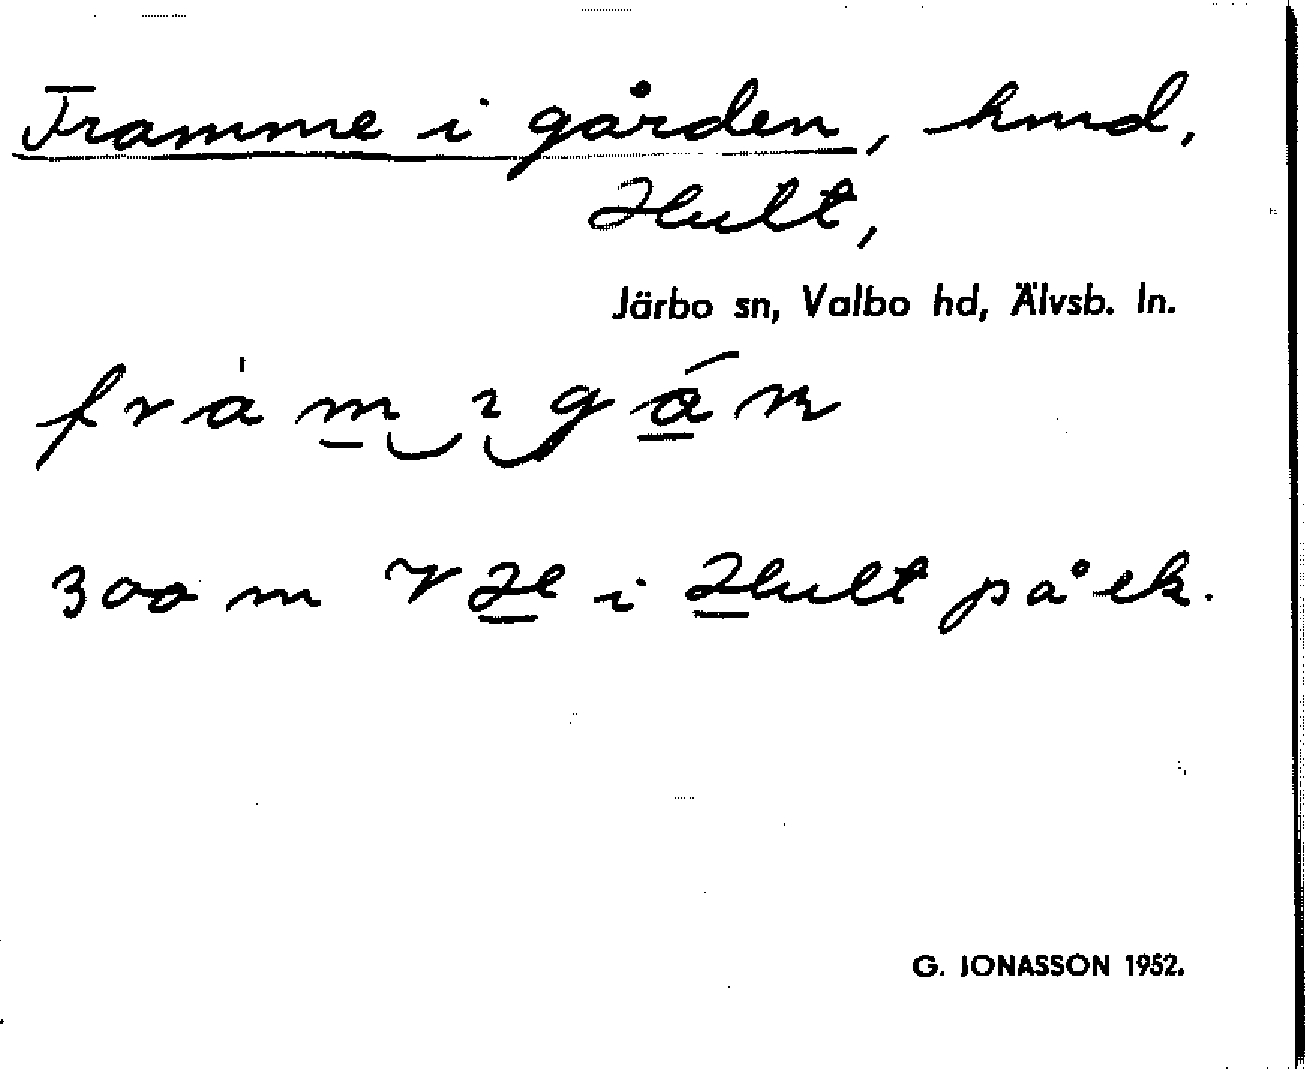 Framme i gården, hmd,
Hult,
Järbo sn, Valbo hd, Älvsb. ln.
300 m V H i Hult på ek.
G. JONASSON 1952.